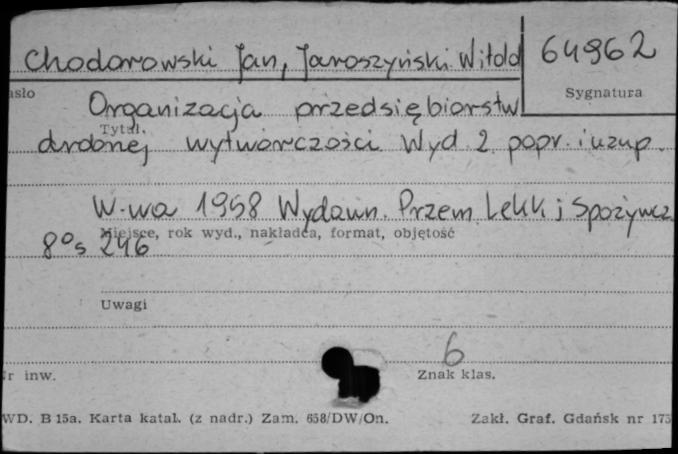 Chodorowski Jan, Jaroszyński Witold 64962
asło Sygnatura
Organizacja przedsiębiorstw
Tytuł,
drobnej wytwórczości Wyd 2 popr. i uzup.
W-wa 1958 Wydawn. Przem Lekk i Spożywcz
Miejsce, rok wyd., nakładca, format, objętość
8° s 246
Uwagi
6
r inw. Znak klas.
WD. B 15a. Karta katal. (z nadr.) Zam. 658/DW/On. Zakł. Graf. Gdańsk nr 175